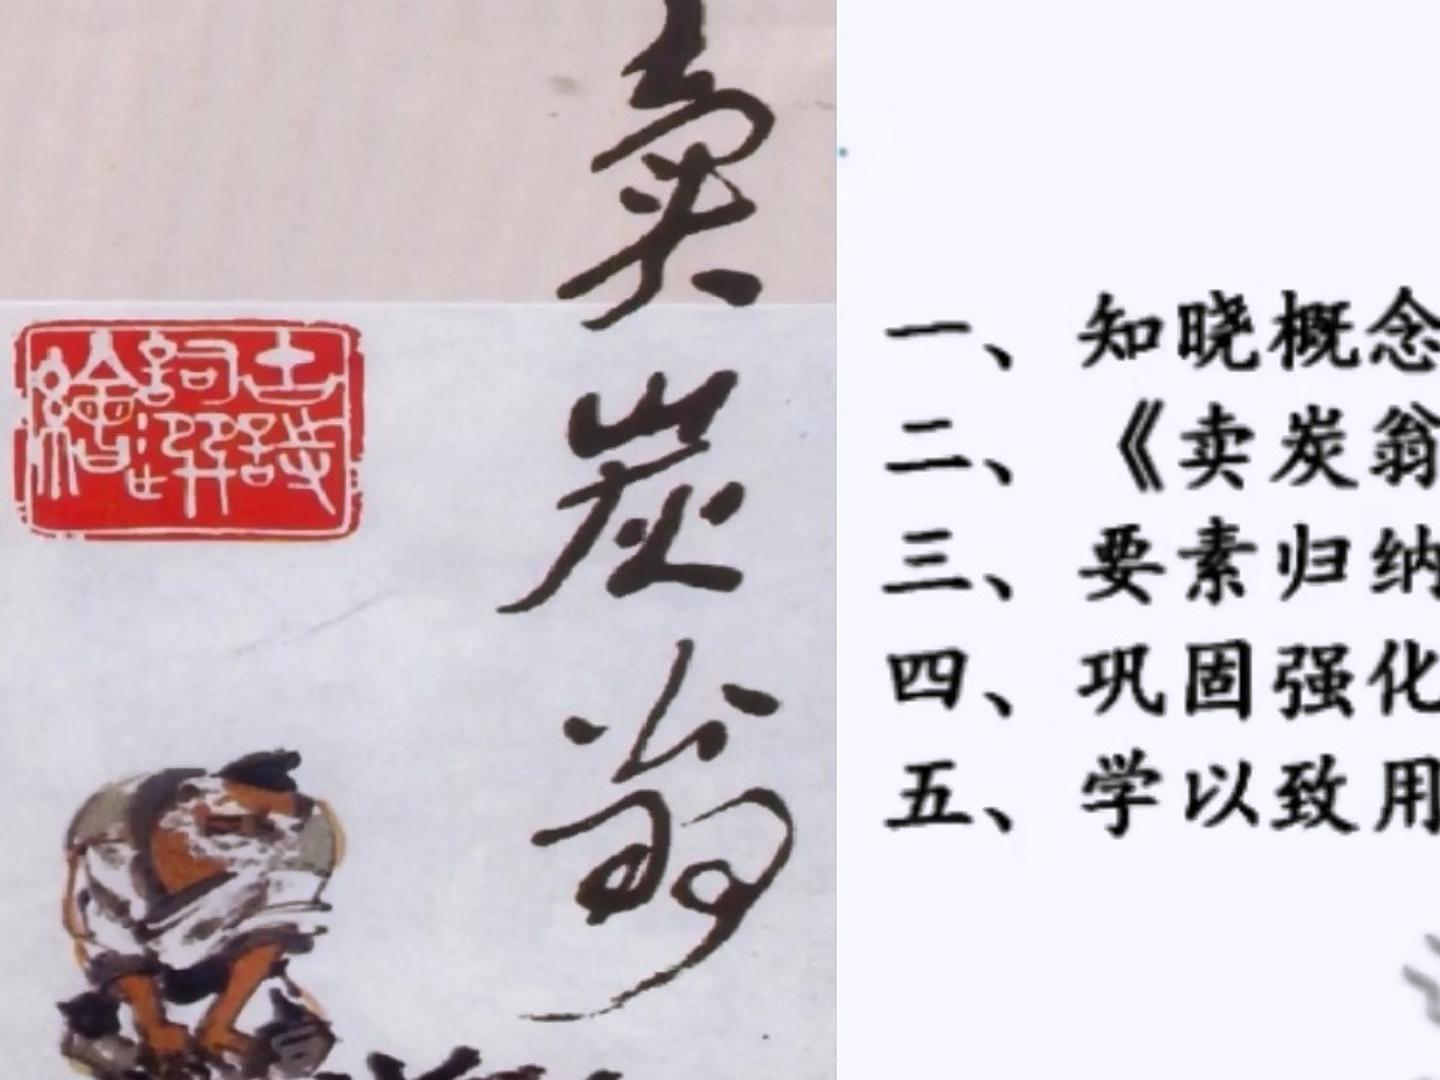 賣炭翁
古詩
詞選
繪
一、知晓概念
二、《卖炭翁
三、要素归纳
四、巩固强化
五、学以致用